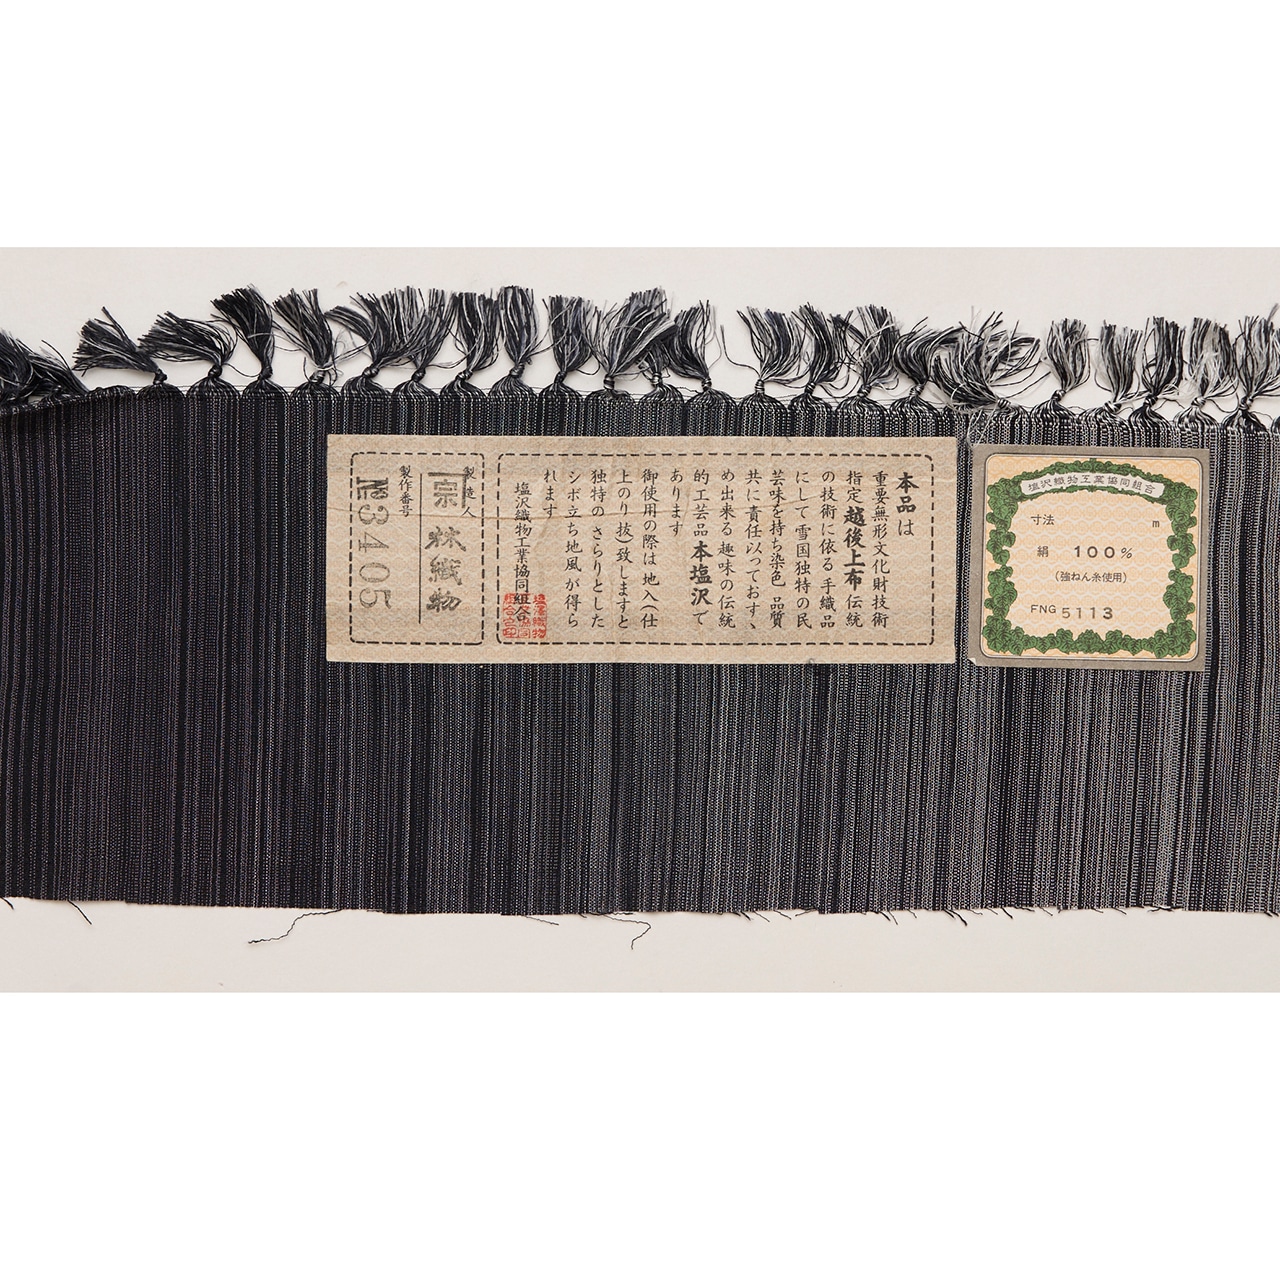 本品は
重要無形文化財技術
指定越後上布伝統
の技術に依る手織品
にして雪国独特の民
芸味を持ち染色 品質
共に責任以っておすゝ
め出来る趣味の伝統
的工芸品本塩沢で
あります
御使用の際は地入(仕
上のり抜)致しますと
独特の さらりとした
シボ立ち地風が得ら
れます
塩沢織物工業協同組合
塩澤織物
組合之印
製造人
林織物
製作番号
№3405
塩沢織物工業協同組合
寸法 m
絹 100%
(強ねん糸使用)
FNG 5113